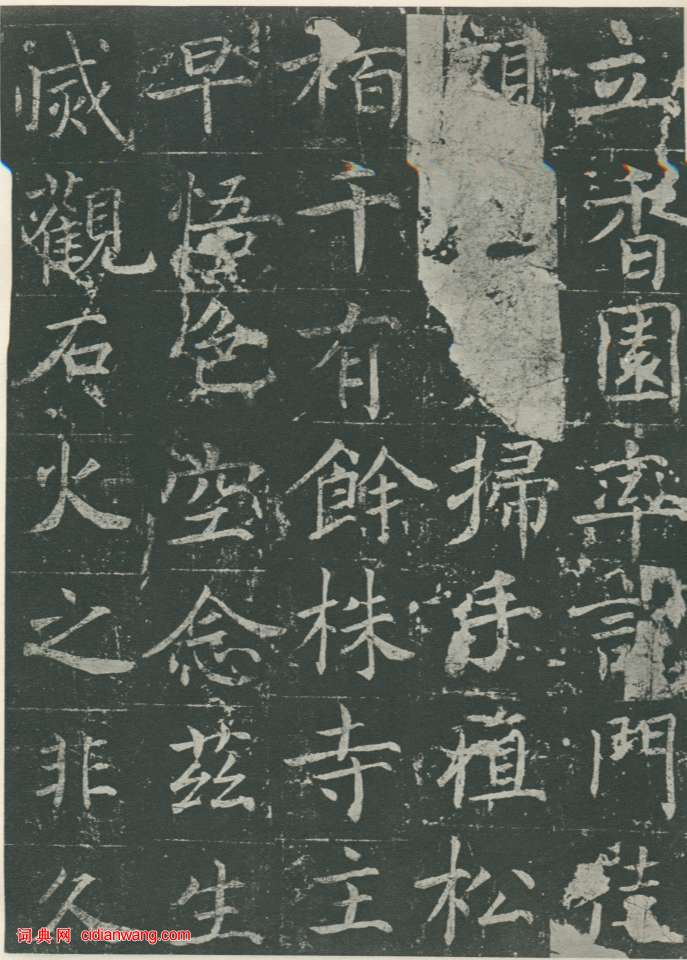 立香園率門徒
掃手植松
栢千有餘株寺主
早悟色空念茲生
滅觀石火之非久
词典网 cidianwang.com